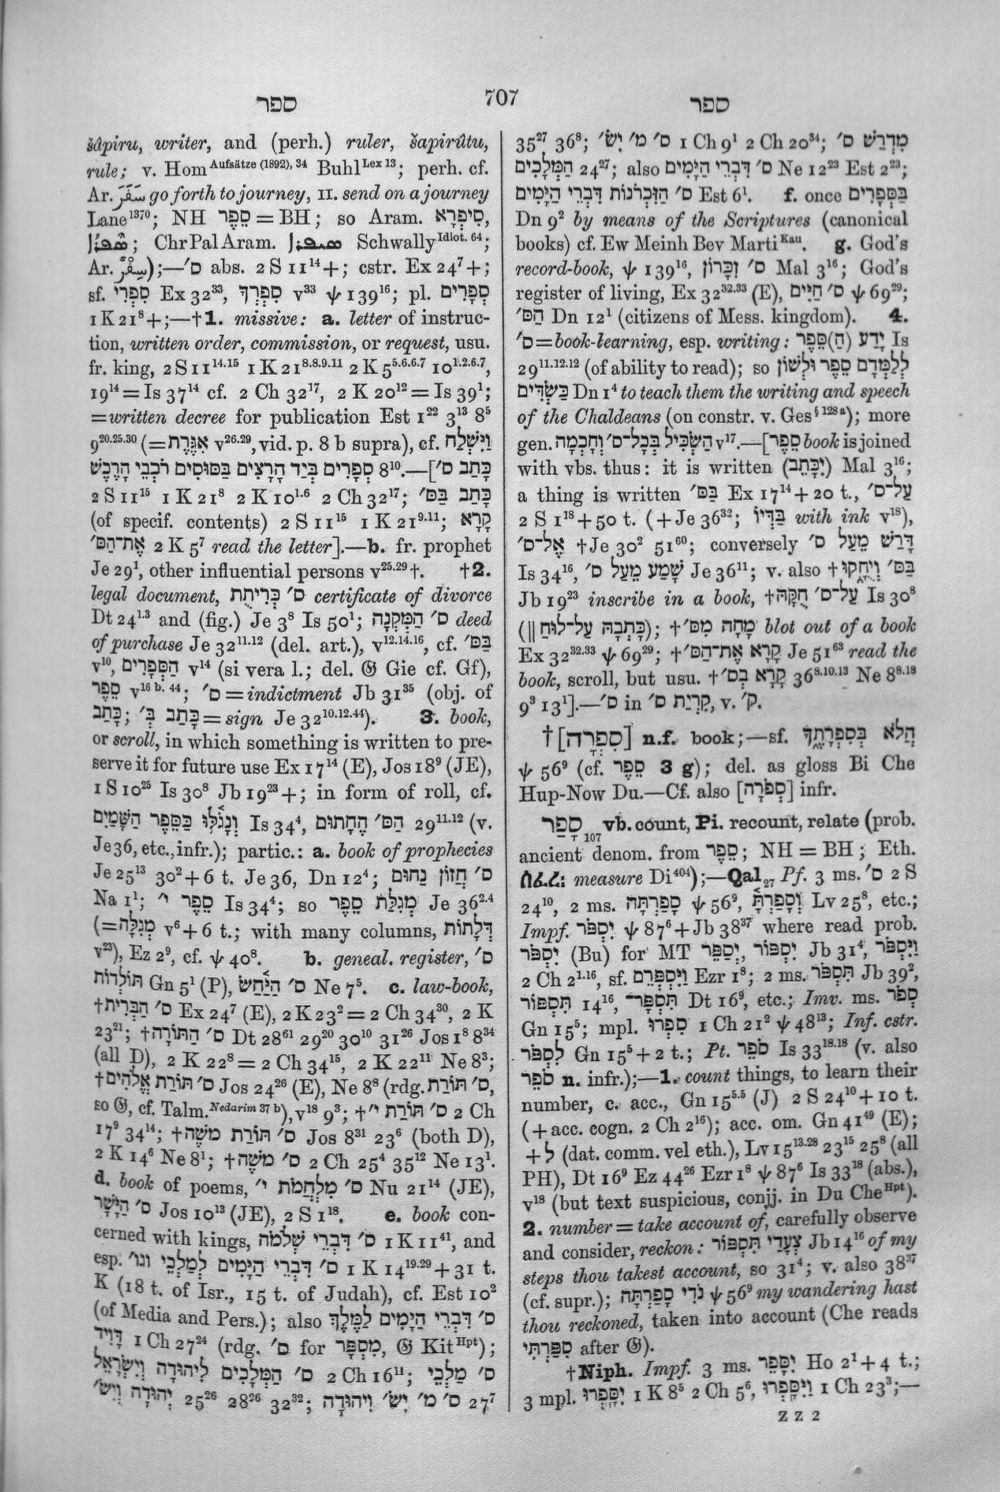 ספר
707
ספר
šâpiru, writer, and (perh.) ruler, šapirûtu,
rule; v. Hom Aufsätze (1892), 34 Buhl Lex 13; perh. cf.
Ar. سَفَرَ go forth to journey, II. send on a journey
Lane 1370; NH סֵפֶר = BH; so Aram. סִיפְרָא,
; ChrPalAram. Schwally Idiot. 64;
Ar. سِفْرٌ);—ס׳ abs. 2 S 11 14 +; cstr. Ex 24 7 +;
sf. סִפְרִי Ex 32 33, סִפְרְךָ v 33 ψ 139 16; pl. סְפָרִים
1 K 21 8 +;—†1. missive: a. letter of instruc-
tion, written order, commission, or request, usu.
fr. king, 2 S 11 14.15 1 K 21 8.8.9.11 2 K 5 5.6.6.7 10 1.2.6.7,
19 14 = Is 37 14 cf. 2 Ch 32 17, 2 K 20 12 = Is 39 1;
= written decree for publication Est 1 22 3 13 8 5
9 20.25.30 (= אִגֶּרֶת v 26.29, vid. p. 8 b supra), cf. וַיִּשְׁלַח
סְפָרִים בְּיַד הָרָצִים בַּסּוּסִים רֹכְבֵי הָרֶכֶשׁ 8 10.—[כָּתַב ס׳
2 S 11 15 1 K 21 8 2 K 10 1.6 2 Ch 32 17; כָּתַב בַּסּ׳
(of specif. contents) 2 S 11 15 1 K 21 9.11; קָרָא
אֶת־הַסּ׳ 2 K 5 7 read the letter].—b. fr. prophet
Je 29 1, other influential persons v 25.29 †. †2.
legal document, ס׳ כְּרִיתֻת certificate of divorce
Dt 24 1.3 and (fig.) Je 3 8 Is 50 1; ס׳ הַמִּקְנָה deed
of purchase Je 32 11.12 (del. art.), v 12.14.16, cf. בַּסּ׳
v 10, הַסְּפָרִים v 14 (si vera l.; del. 𝔊 Gie cf. Gf),
סֵפֶר v 16 b. 44; ס׳ = indictment Jb 31 35 (obj. of
כָּתַב); כָּתַב בְּ׳ = sign Je 32 10.12.44). 3. book,
or scroll, in which something is written to pre-
serve it for future use Ex 17 14 (E), Jos 18 9 (JE),
1 S 10 25 Is 30 8 Jb 19 23 +; in form of roll, cf.
וְנָגֹלּוּ כַסֵּפֶר הַשָּׁמַיִם Is 34 4, הַסּ׳ הֶחָתוּם 29 11.12 (v.
Je 36, etc., infr.); partic.: a. book of prophecies
Je 25 13 30 2 + 6 t. Je 36, Dn 12 4; ס׳ חֲזוֹן נַחוּם
Na 1 1; סֵפֶר י׳ Is 34 4; so מְגִלַּת סֵפֶר Je 36 2.4
(= מְגִלָּה v 6 + 6 t.; with many columns, דְּלָתוֹת
v 23), Ez 2 9, cf. ψ 40 8. b. geneal. register, ס׳
תּוֹלְדוֹת Gn 5 1 (P), ס׳ הַיַּחַשׂ Ne 7 5. c. law-book,
†ס׳ הַבְּרִית Ex 24 7 (E), 2 K 23 2 = 2 Ch 34 30, 2 K
23 21; †ס׳ הַתּוֹרָה Dt 28 61 29 20 30 10 31 26 Jos 1 8 8 34
(all D), 2 K 22 8 = 2 Ch 34 15, 2 K 22 11 Ne 8 3;
†ס׳ תּוֹרַת אֱלֹהִים Jos 24 26 (E), Ne 8 8 (rdg. ס׳ תּוֹרַת,
so 𝔊, cf. Talm. Nedarim 37 b), v 18 9 3; †ס׳ תּוֹרַת י׳ 2 Ch
17 9 34 14; †ס׳ תּוֹרַת משֶׁה Jos 8 31 23 6 (both D),
2 K 14 6 Ne 8 1; †ס׳ משֶׁה 2 Ch 25 4 35 12 Ne 13 1.
d. book of poems, ס׳ מִלְחֲמֹת י׳ Nu 21 14 (JE),
ס׳ הַיָּשָׁר Jos 10 13 (JE), 2 S 1 18. e. book con-
cerned with kings, ס׳ דִּבְרֵי שְׁלֹמֹה 1 K 11 41, and
esp. ס׳ דִּבְרֵי הַיָּמִים לְמַלְכֵי וגו׳ 1 K 14 19.29 + 31 t.
K (18 t. of Isr., 15 t. of Judah), cf. Est 10 2
(of Media and Pers.); also ס׳ דִּבְרֵי הַיָּמִים לַמֶּלֶךְ
דָּוִיד 1 Ch 27 24 (rdg. ס׳ for מִסְפָּר, 𝔊 Kit Hpt);
ס׳ הַמְּלָכִים לִיהוּדָה וְיִשְׂרָאֵל 2 Ch 16 11; ס׳ מַלְכֵי
יְהוּדָה וְיִשׂ׳ 25 26 28 26 32 32; ס׳ מ׳ יִשׂ׳ וִיהוּדָה 27 7
35 27 36 8; ס׳ מ׳ יִשׂ׳ 1 Ch 9 1 2 Ch 20 34; מִדְרַשׁ ס׳
הַמְּלָכִים 24 27; also ס׳ דִּבְרֵי הַיָּמִים Ne 12 23 Est 2 23;
ס׳ הַזִּכְרֹנוֹת דִּבְרֵי הַיָּמִים Est 6 1. f. once בַּסְּפָרִים
Dn 9 2 by means of the Scriptures (canonical
books) cf. Ew Meinh Bev Marti Kau. g. God's
record-book, ψ 139 16, ס׳ זִכָּרוֹן Mal 3 16; God's
register of living, Ex 32 32.33 (E), ס׳ חַיִּים ψ 69 29;
הַסּ׳ Dn 12 1 (citizens of Mess. kingdom). 4.
ס׳ = book-learning, esp. writing: יָדַע (הַ)סֵּפֶר Is
29 11.12.12 (of ability to read); so לְלַמְּדָם סֵפֶר וּלְשׁוֹן
כַּשְׂדִּים Dn 1 4 to teach them the writing and speech
of the Chaldeans (on constr. v. Ges § 128 a); more
gen. הַשְׂכֵּיל בְּכָל־ס׳ וְחָכְמָה v 17.—[סֵפֶר book is joined
with vbs. thus: it is written (יִכָּתֵב) Mal 3 16;
a thing is written בַּסּ׳ Ex 17 14 + 20 t., עַל־ס׳
2 S 1 18 + 50 t. (+ Je 36 32; בַּדְּיוֹ with ink v 18),
אֶל־ס׳ †Je 30 2 51 60; conversely דָּרַשׁ מֵעַל ס׳
Is 34 16, שָׁמַע מֵעַל ס׳ Je 36 11; v. also †בַּסּ׳ וְיֻחָקוּ
Jb 19 23 inscribe in a book, †עַל־ס׳ חֻקָּהּ Is 30 8
(‖ כָּתְבָהּ עַל־לוּחַ); †מָחָה מִסּ׳ blot out of a book
Ex 32 32.33 ψ 69 29; †קָרָא אֶת־הַסּ׳ Je 51 63 read the
book, scroll, but usu. †קָרָא בְס׳ 36 8.10.13 Ne 8 8.18
9 3 13 1].—ס׳ in קִרְיַת ס׳, v. ק׳.
†[סִפְרָה] n.f. book;—sf. הֲלֹא בְּסִפְרָתֶךָ
ψ 56 9 (cf. סֵפֶר 3 g); del. as gloss Bi Che
Hup-Now Du.—Cf. also [סְפֹרָה] infr.
סָפַר 107 vb. count, Pi. recount, relate (prob.
ancient denom. from סֵפֶר; NH = BH; Eth.
ሰፈረ: measure Di 404);—Qal 27 Pf. 3 ms. ס׳ 2 S
24 10, 2 ms. סָפַרְתָּה ψ 56 9, וְסָפַרְתָּ Lv 25 8, etc.;
Impf. יִסְפֹּר ψ 87 6 + Jb 38 37 where read prob.
יִסְפֹּר (Bu) for MT יִסְפּוֹר, יְסַפֵּר Jb 31 4, וַיִּסְפֹּר
2 Ch 2 1.16, sf. וַיִּסְפְּרֵם Ezr 1 8; 2 ms. תִּסְפֹּר Jb 39 2,
תִּסְפּוֹר 14 16, תִּסְפָּר־ Dt 16 9, etc.; Imv. ms. סְפֹר
Gn 15 5; mpl. סִפְרוּ 1 Ch 21 2 ψ 48 13; Inf. cstr.
לִסְפֹּר Gn 15 5 + 2 t.; Pt. סֹפֵר Is 33 18.18 (v. also
סֹפֵר n. infr.);—1. count things, to learn their
number, c. acc., Gn 15 5.5 (J) 2 S 24 10 + 10 t.
(+ acc. cogn. 2 Ch 2 16); acc. om. Gn 41 49 (E);
+ לְ (dat. comm. vel eth.), Lv 15 13.28 23 15 25 8 (all
PH), Dt 16 9 Ez 44 26 Ezr 1 8 ψ 87 6 Is 33 18 (abs.),
v 18 (but text suspicious, conjj. in Du Che Hpt).
2. number = take account of, carefully observe
and consider, reckon: צְעָדַי תִּסְפּוֹר Jb 14 16 of my
steps thou takest account, so 31 4; v. also 38 37
(cf. supr.); נֹדִי סָפַרְתָּה ψ 56 9 my wandering hast
thou reckoned, taken into account (Che reads
סָפַרְתִּי after 𝔊).
†Niph. Impf. 3 ms. יִסָּפֵר Ho 2 1 + 4 t.;
3 mpl. יִסָּפְרוּ 1 K 8 5 2 Ch 5 6, וַיִּסָּפְרוּ 1 Ch 23 3;—
Z Z 2